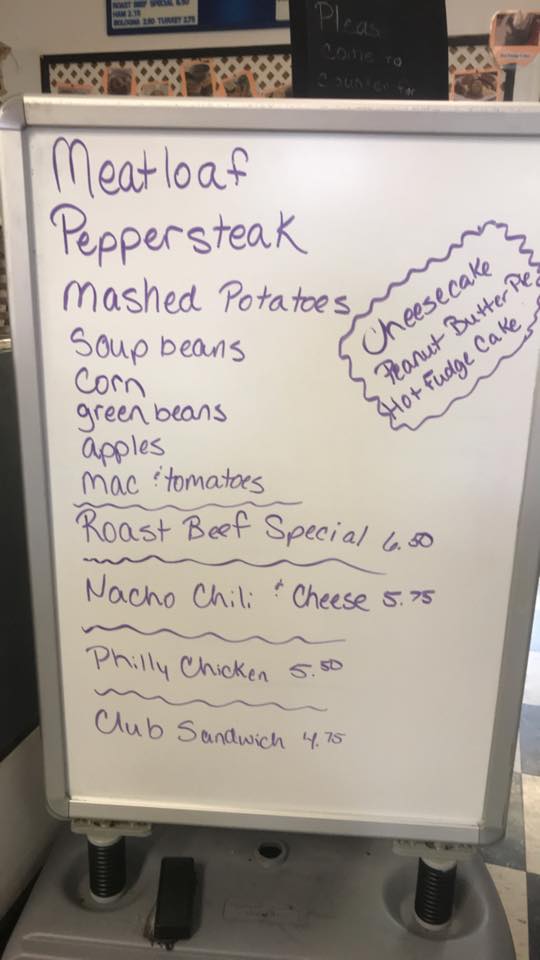 ROAST BEEF SPECIAL 6.50
HAM 2.75
BOLOGNA 2.50 TURKEY 2.75
Pleas
come to
counter for
Meatloaf
Peppersteak
Mashed Potatoes
Soup beans
Corn
green beans
apples
Mac & tomatoes
Cheesecake
Peanut Butter Pie
Hot Fudge Cake
Roast Beef Special 6.50
Nacho Chili & Cheese 5.75
Philly Chicken 5.50
Club Sandwich 4.75